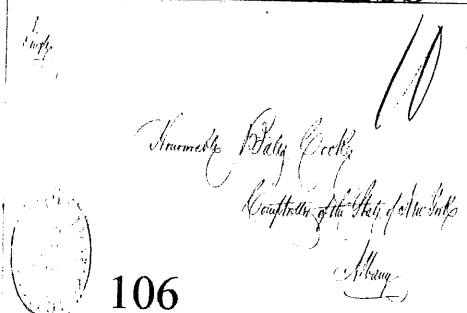 Single
10
Honorable Bates Cooke
Comptroller of the State of New York
Albany
106